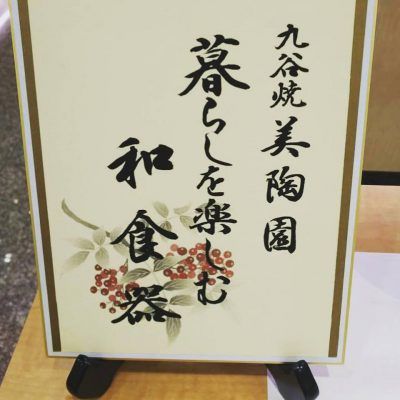 九谷焼 美陶園
暮らしを楽しむ
和食器